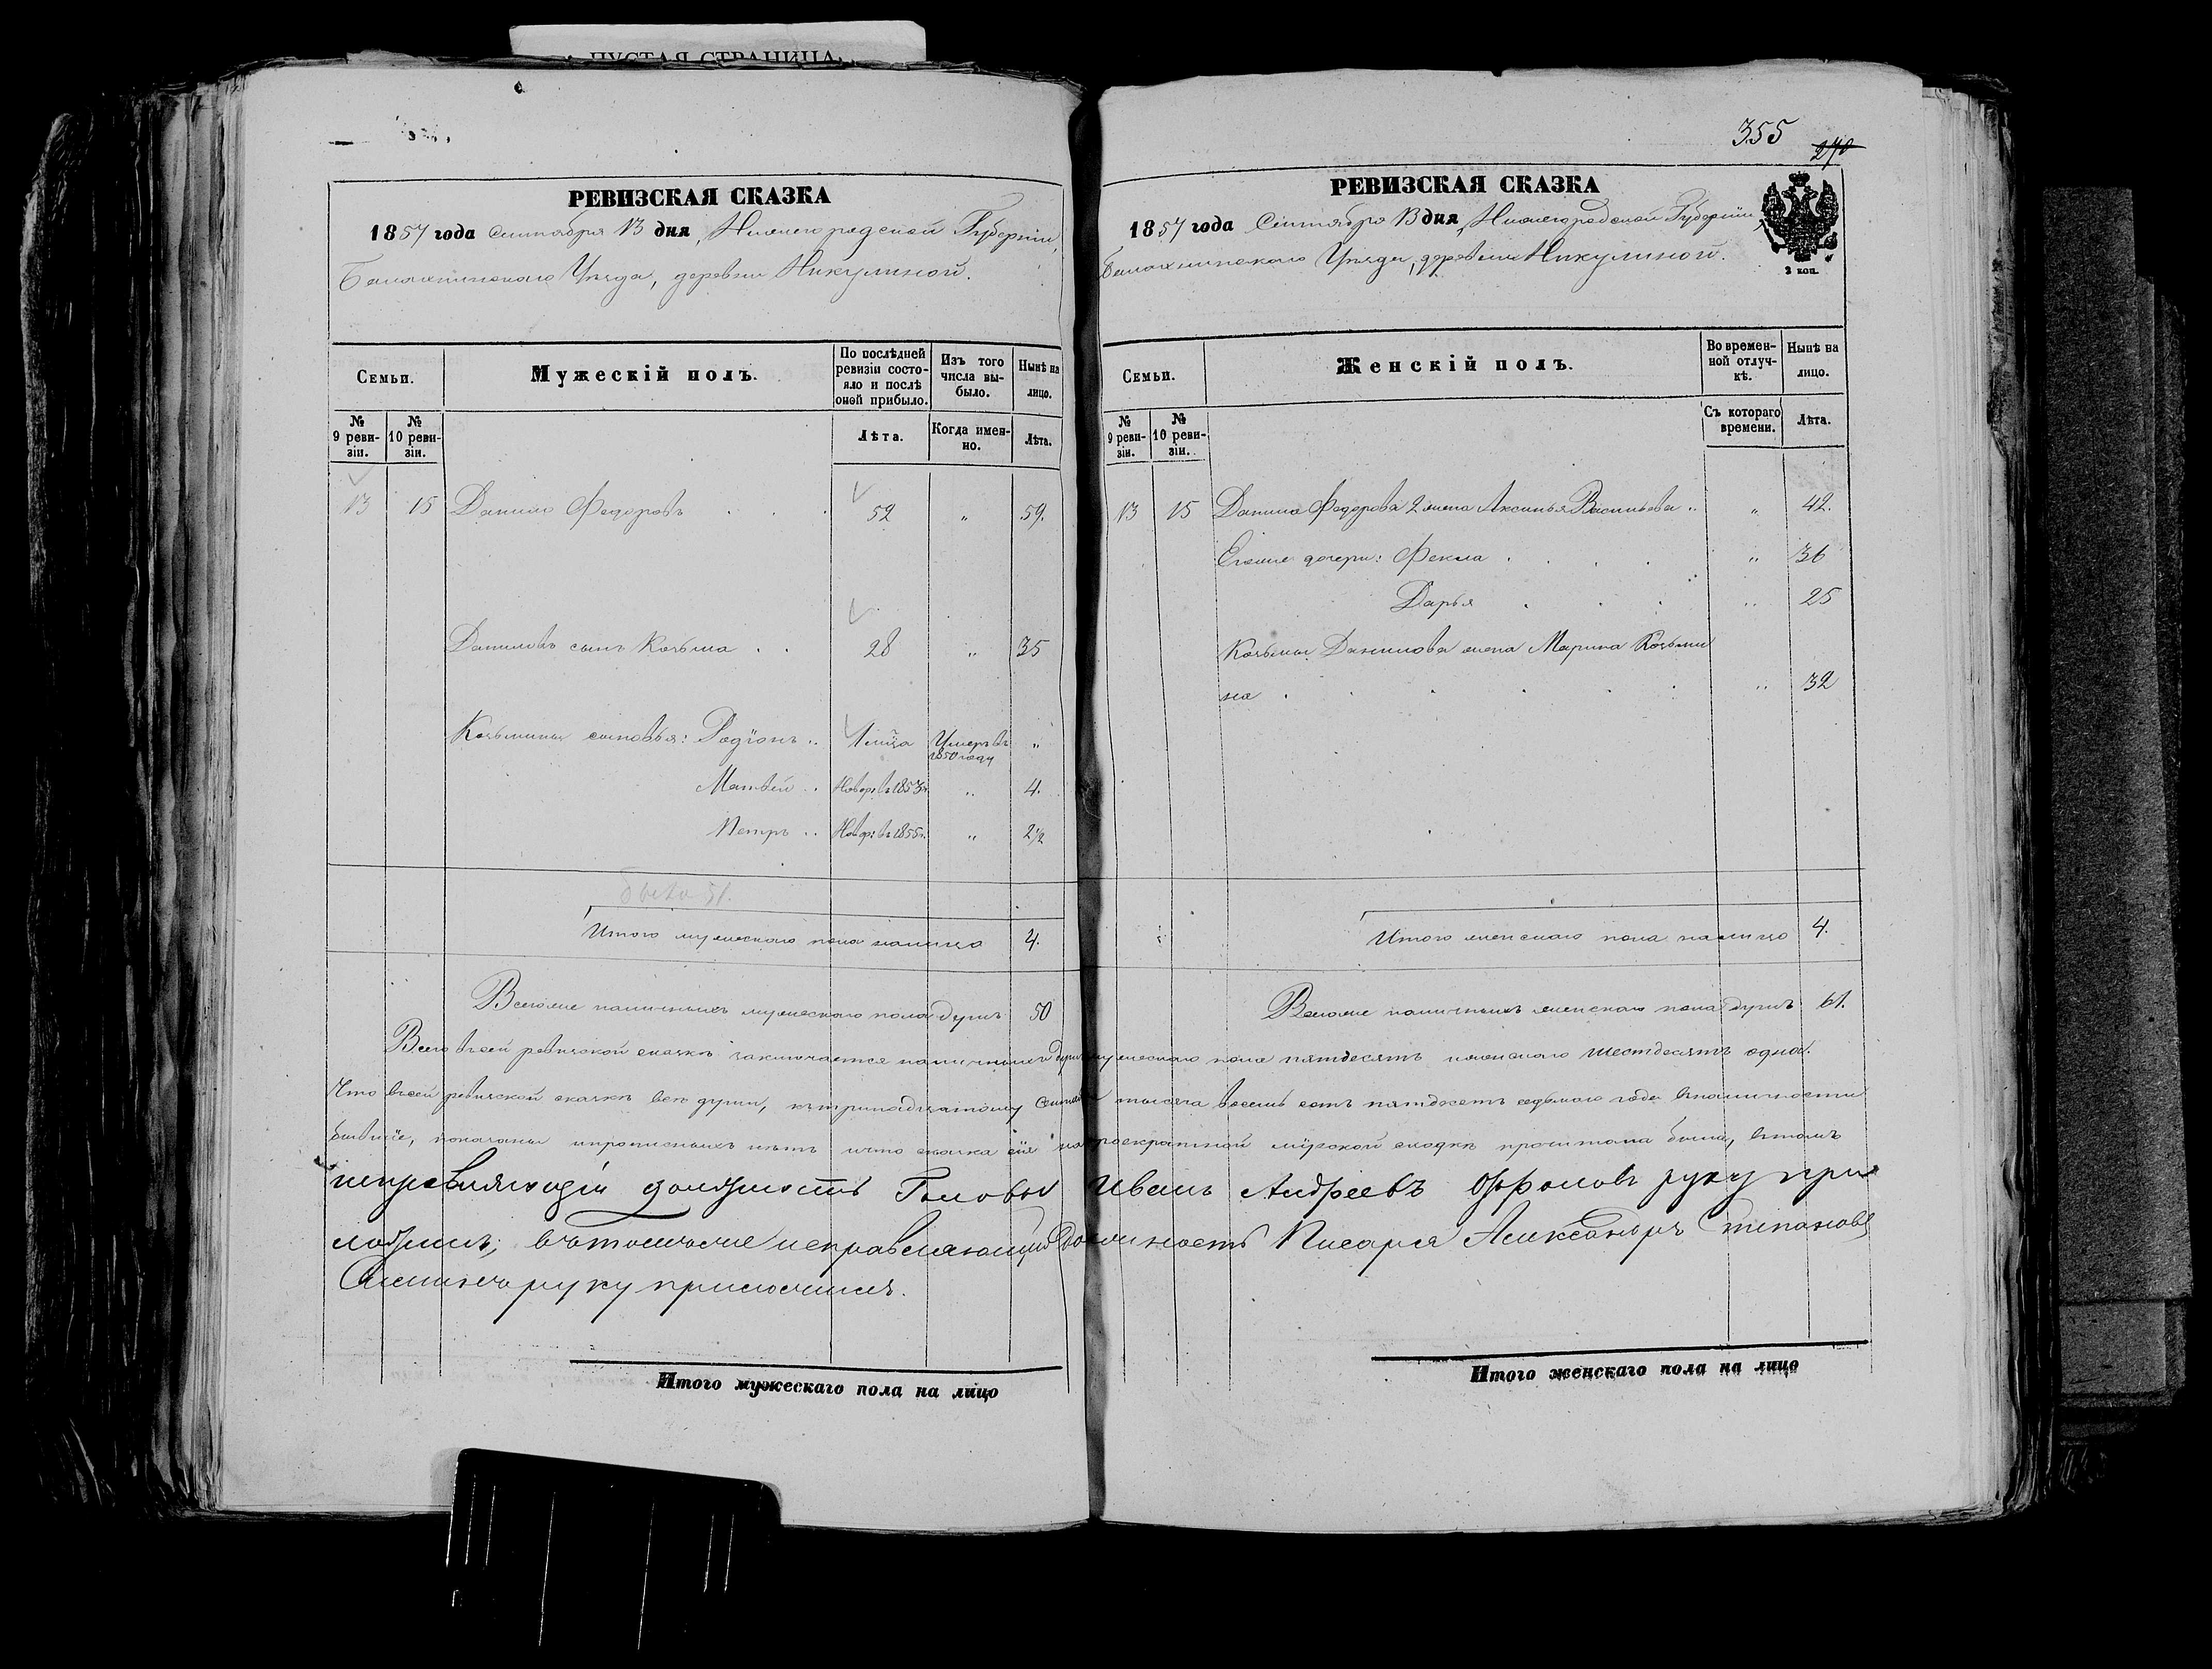 ПУСТАЯ СТРАНИЦА
РЕВИЗСКАЯ СКАЗКА
1857 года Сентября 13 дня, Нижегородской Губерніи,
Балахнинскаго Уѣзда, деревни Никулиной.
Семьи.
Мужескій полъ.
По послѣдней ревизіи состояло и послѣ оной прибыло.
Изъ того числа выбыло.
Нынѣ на лицо.
№ 9 ревизіи.
№ 10 ревизіи.
Лѣта.
Когда именно.
Лѣта.
13 15 Данило Федоровъ . . . 52 " 59.
Даниловъ сынъ Козьма . . 28 " 35
Козьмины сыновья: Родіонъ .. 1 мѣца Умеръ въ 1850 году "
Матвѣй .. Новор: въ 1853 г. " 4.
Петръ .. Новор: въ 1855 г. " 2 1/2
было 51.
Итого мужескаго пола налицо 4.
Всего же наличныхъ мужескаго пола душъ 50
355
270
РЕВИЗСКАЯ СКАЗКА
1857 года Сентября 13 дня, Нижегородской Губерніи,
Балахнинскаго Уѣзда, деревни Никулиной.
2 коп.
Семьи.
Женскій полъ.
Во временной отлучкѣ.
Нынѣ на лицо.
№ 9 ревизіи.
№ 10 ревизіи.
Съ котораго времени.
Лѣта.
13 15 Данила Федорова 2 жена Аксинья Васильева .. " 42.
Егоже дочери: Фекла . . . . " 36
Дарья . . . " 25
Козьмы Данилова жена Марина Козьми
на . . . . . . " 32
Итого женскаго пола налицо 4.
Всего же наличныхъ женскаго пола душъ 61.
Всего въ сей ревизской сказкѣ заключается наличныхъ душъ мужескаго пола пятдесятъ женскаго шестдесятъ одна.
Что въ сей ревизской сказкѣ всѣ души, къ тринадцатому Сентября тысяча восемь сотъ пятдесятъ седьмого года въ наличности
бывшіе, показаны и прописныхъ нѣтъ и что сказка сія на троекратной мірской сходкѣ прочитана была, въ томъ
исправляющій должность Головы Иванъ Андреевъ руку при
ложилъ, въ томъ же исправляющій должность Писаря Александръ Степановъ
руку приложилъ.
Итого мужескаго пола на лицо
Итого женскаго пола на лицо